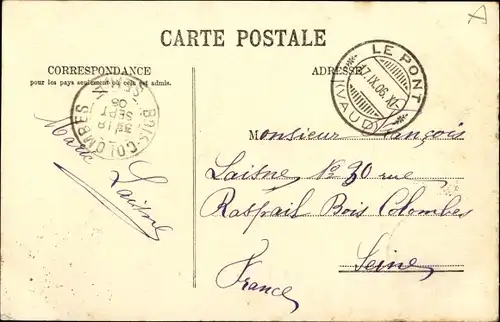 CARTE POSTALE
CORRESPONDANCE
pour les pays seulement où cela est admis.
ADRESSE
LE PONT
17.IX.06.XI
(VAUD)
BOIS-COLOMBES
18
SEPT
06
Monsieur François
Laisne, No 30 rue
Raspail Bois Colombes
Seine
France
Marie Laisne